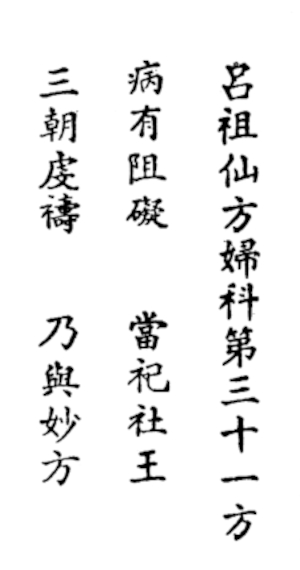 呂祖仙方婦科第三十一方
病有阻礙　當祀社王
三朝虔禱　乃與妙方